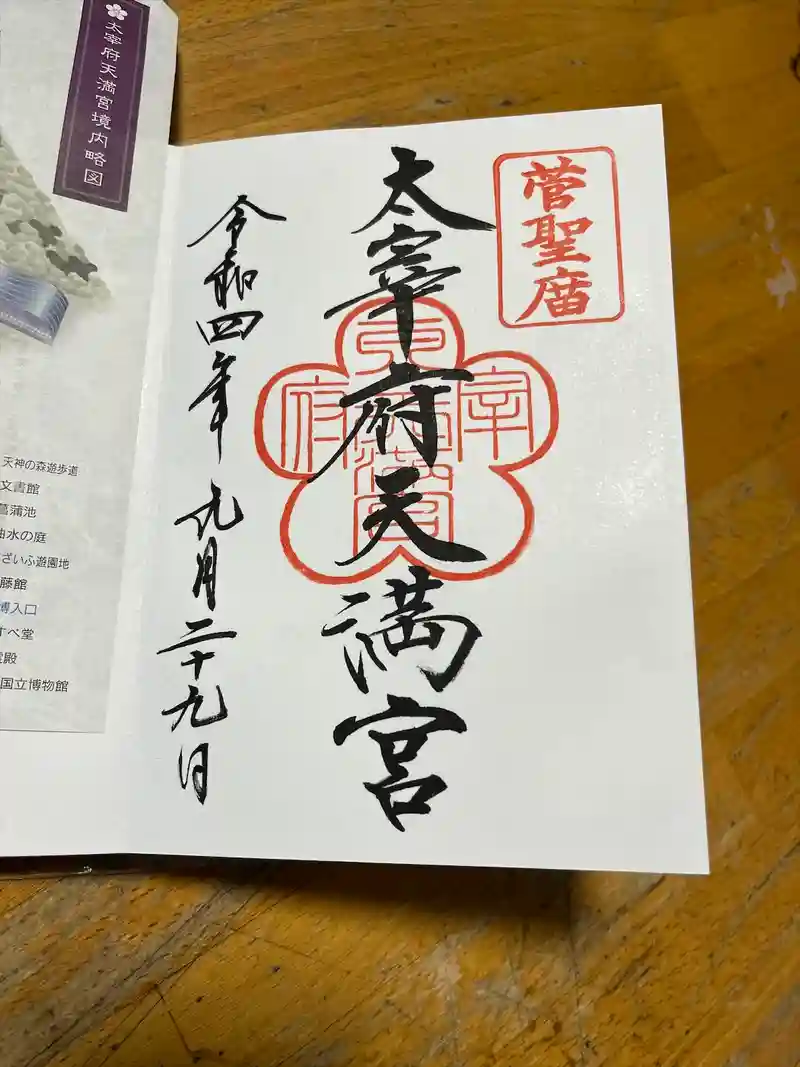 菅聖庿
太宰府天満宮
令和四年九月二十九日
太宰府天満宮境内略図
天神の森遊歩道
文書館
菖蒲池
曲水の庭
ざいふ遊園地
藤館
博入口
すべ堂
霊殿
国立博物館